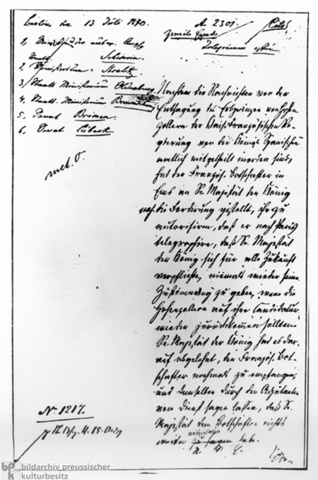 Berlin den 13 Juli 1870. A. 2301.
1,
Schwerin
2, Strelitz
3, Staats Ministerium Oldenburg
4, Staats Ministerium Braunschweig
5, Senat Bremen
6, Senat Lübeck
Nachdem die Nachrichten von der
Entsagung des Erbprinzen von Hohen
zollern der Kais. Französischen Re
gierung von der Königl. Spanischen
amtlich mitgetheilt worden sind,
hat der Französ. Botschafter in
Ems an Se. Majestät den König
noch die Forderung gestellt, ihn zu
autorisiren, daß er nach Paris
telegraphire, daß Se. Majestät
der König sich für alle Zukunft
verpflichte, niemals wieder seine
Zustimmung zu geben, wenn die
Hohenzollern auf ihre Candidatur
wieder zurückkommen sollten.
Se. Majestät der König hat es dar
auf abgelehnt, den Französ. Bot
schafter nochmals zu empfangen,
und demselben durch den Adjutanten
vom Dienst sagen lassen, daß Se.
Majestät dem Botschafter nichts
weiter mitzutheilen habe.
No 1217.
bpk bildarchiv preussischer
kulturbesitz